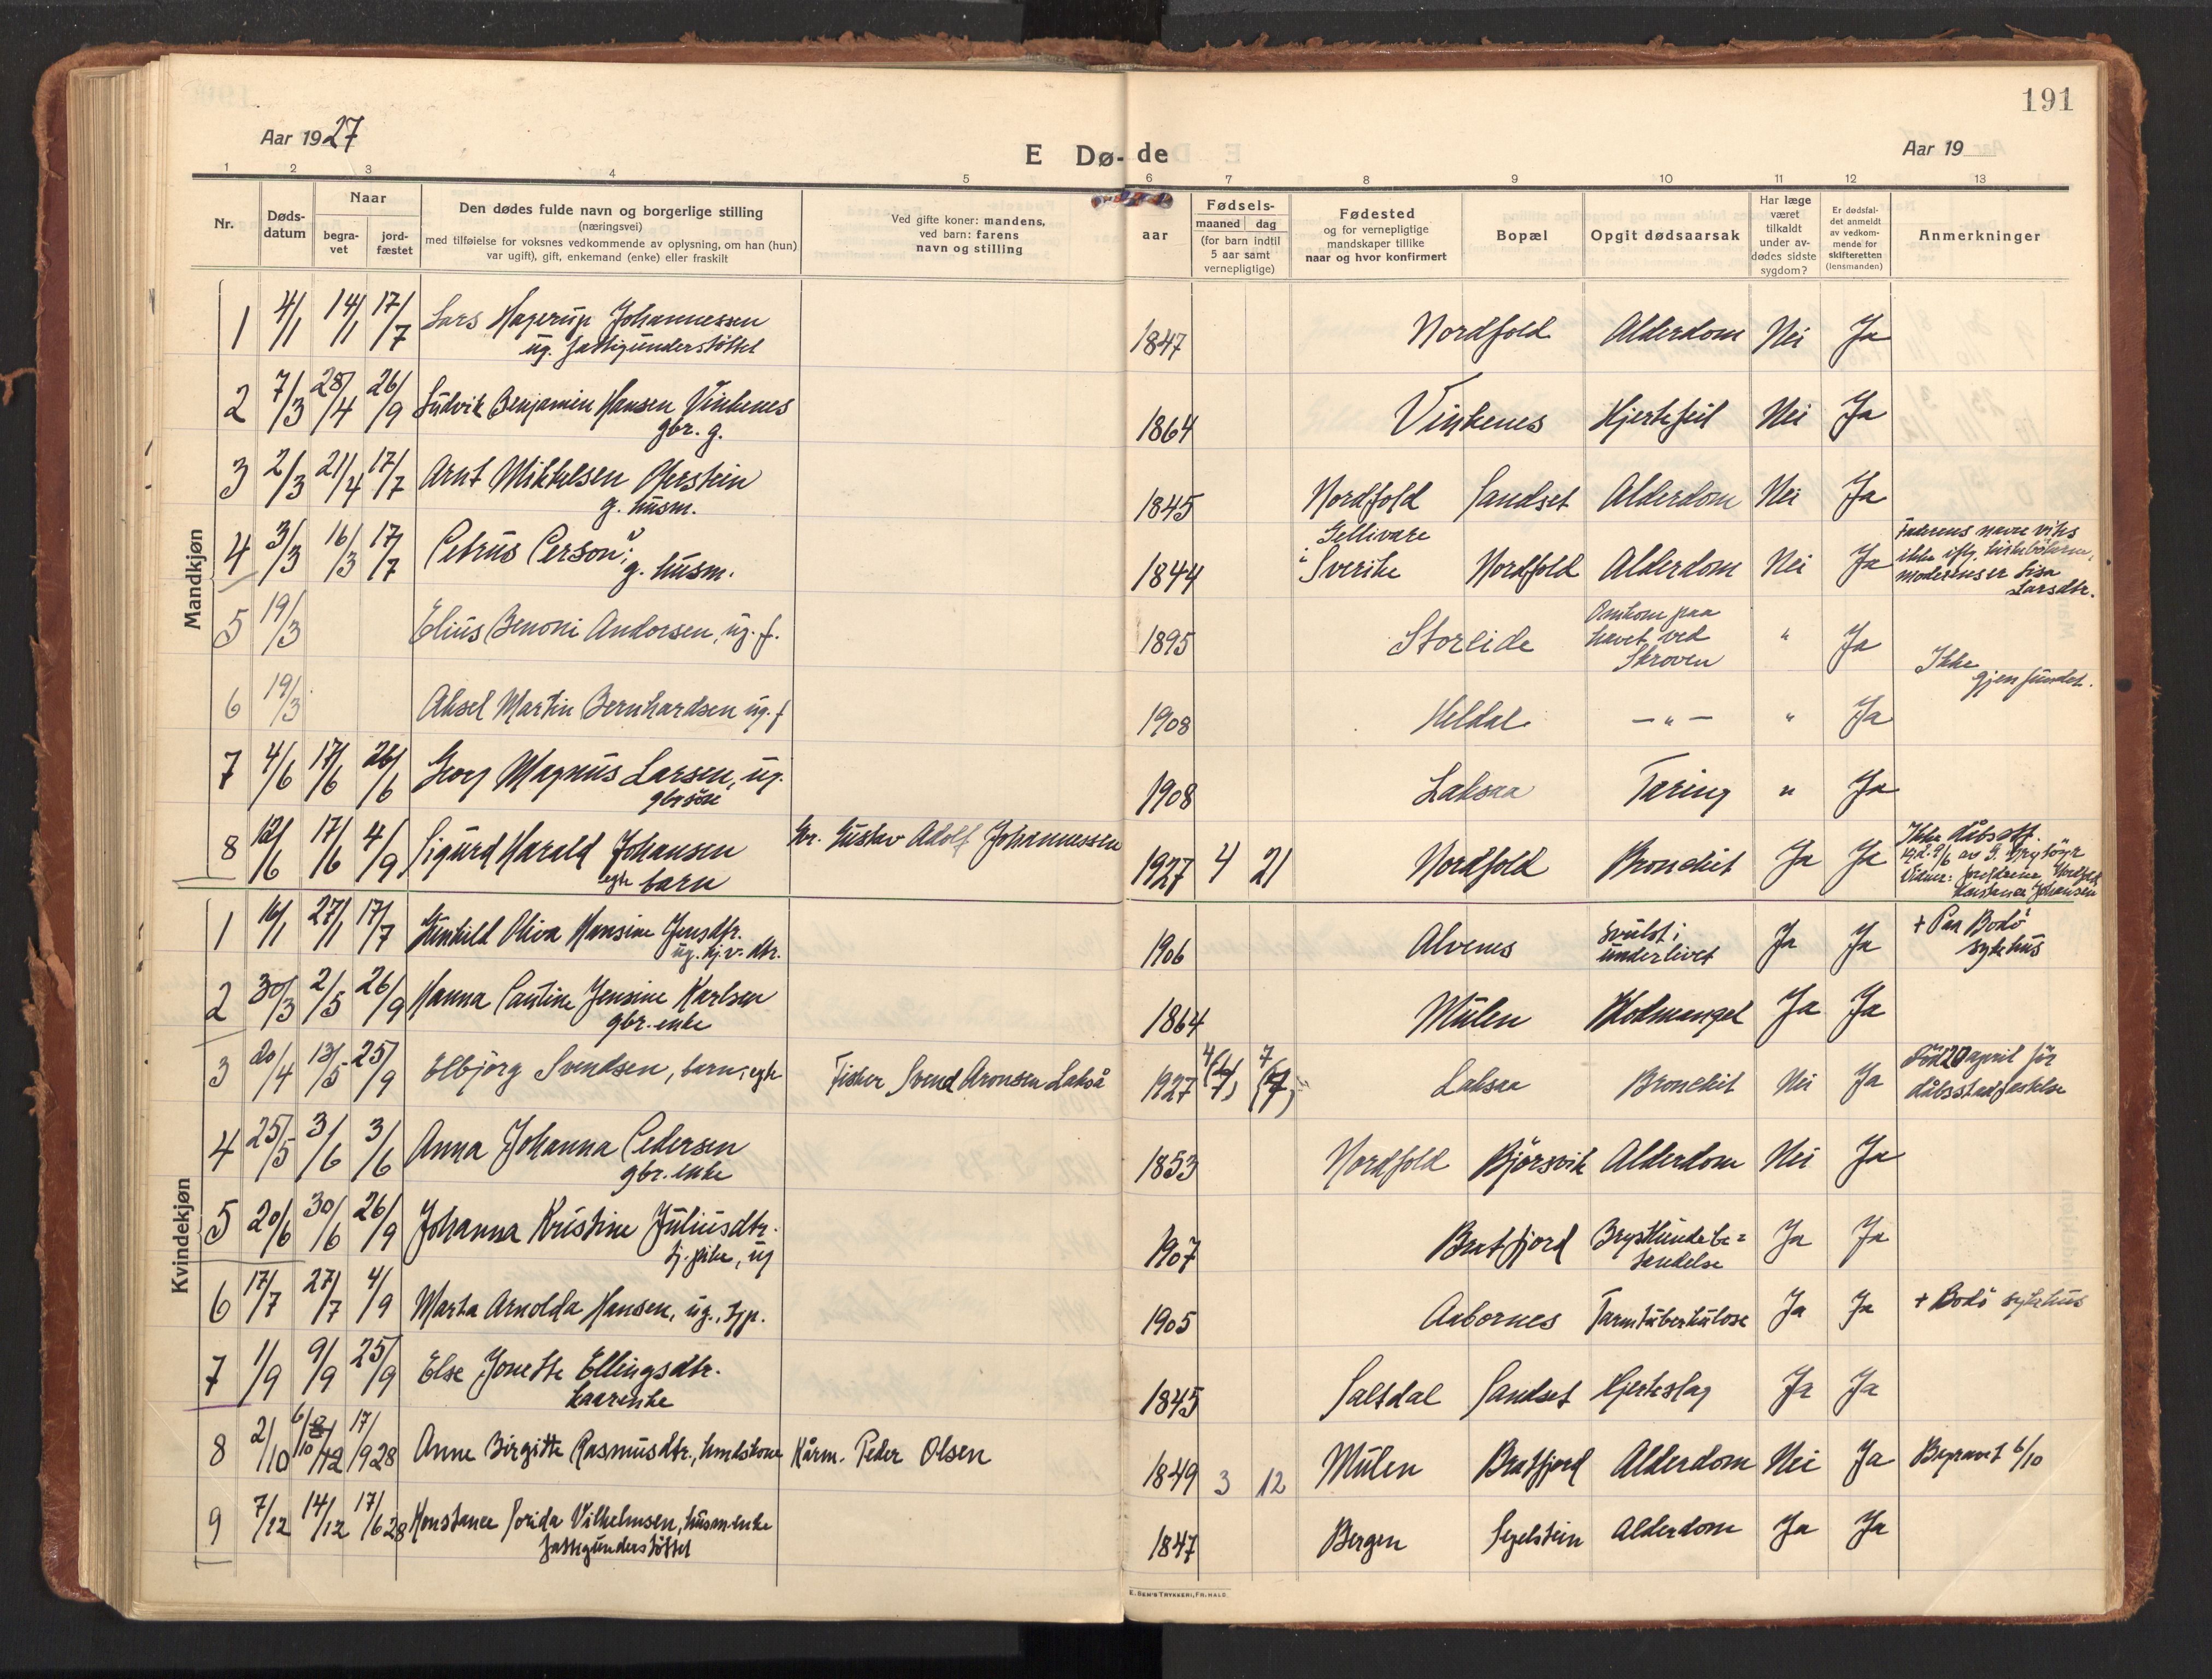 191
Aar 1927
E Dø- de
Aar 19
1 2 3 4 5 6 7 8 9 10 11 12 13
Nr.
Døds-
datum
Naar
begra-
vet
jord-
fæstet
Den dødes fulde navn og borgerlige stilling
(næringsvei)
med tilføielse for voksnes vedkommende av oplysning, om han (hun)
var ugift), gift, enkemand (enke) eller fraskilt
Ved gifte koner: mandens,
ved barn: farens
navn og stilling
aar
Fødsels-
maaned dag
(for barn indtil
5 aar samt
vernepligtige)
Fødested
og for vernepligtige
mandskaper tillike
naar og hvor konfirmert
Bopæl
Opgit dødsaarsak
Har læge
været
tilkaldt
under av-
dødes sidste
sygdom?
Er dødsfal-
det anmeldt
av vedkom-
mende for
skifteretten
(lensmanden)
Anmerkninger
Mandkjøn
1 4/1 14/1 17/7 Lars Hagerup Johannessen 1847 Nordfold Alderdom Nei Ja
ug. fattigunderstöttet
2 7/3 28/4 26/9 Ludvik Benjamin Hansen Vinkenes 1864 Vinkenes Hjertefeil Nei Ja
gbr. g.
3 2/3 21/4 17/7 Arnt Mikkelsen 1845 Nordfold Sandset Alderdom Nei Ja
g. husm.
4 3/3 16/3 17/7 Petrus Person; g. husm. 1844 Gellivare
i Sverike Nordfold Alderdom Nei Ja
Faderens navn
ikke
moderens er Lisa
Larsdtr.
5 19/3 Elius Benoni Andorsen, ug. f. 1895 Storeide Omkom paa
havet ved
Skroven " Ja
Ikke
gjenfundet.
6 19/3 Aksel Martin Bernhardsen ug. f 1908 Heldal — " — " Ja
7 4/6 17/6 26/6 Georg Magnus Larsen, ug. 1908 Laksaa Tæring " Ja
gbrsön
8 12/6 17/6 4/9 Sigurd Harald Johansen Gbr. Gustav Adolf Johannessen 1927 4 21 Nordfold Bronchit Ja Ja
egte barn
Ikke
9/6 av G.
Konstance Johansen
Kvindekjøn
1 16/1 27/1 17/7 Gunhild Oliva Hansine Jensdtr. 1906 Alvenes Svulst i
underlivet Ja Ja + Paa Bodö
sykehus
ug. dtr.
2 30/3 2/5 26/9 Hanna Pauline Jensine Karlsen 1864 Mülen Blodmangel Ja Ja
gbr. enke
3 20/4 13/5 25/9 Elbjörg Svendsen, barn, egte Fisker Svend Aronsen Lakså 1927 4 7 Laksaa Bronchit Nei Ja
Död 20 april för
dåbsstadfæstelse
4 25/5 3/6 3/6 Anna Johanna Pedersen 1853 Nordfold Björsvik Alderdom Nei Ja
gbr. enke
5 20/6 30/6 26/9 Johanna Kristine Juliusdtr. 1907 Bratfjord Brysthindebe=
tendelse Ja Ja
tj. pike, ug
6 17/7 27/7 4/9 Marta Arnolda Hansen, ug., tjp. 1905 Aabornes Tarmtuberkulose Ja Ja + Bodö sykehus
7 1/9 9/9 25/9 Else Jonette Ellingsdtr. 1845 Saltdal Sandset Hjerteslag Ja Ja
kaarenke
8 2/10 6/10 17/9 28 Anne Birgitte Rasmusdtr., Kårm. Peder Olsen 1849 3 12 Mülen Bratfjord Alderdom Nei Ja Begravet 6/10
9 7/12 14/12 17/6 28 Konstance Vilhelmsen, husm. enke 1847 Bergen Segelstein Alderdom Ja Ja
fattigunderstöttet
E. SEM'S TRYKKERI, FR.HALD